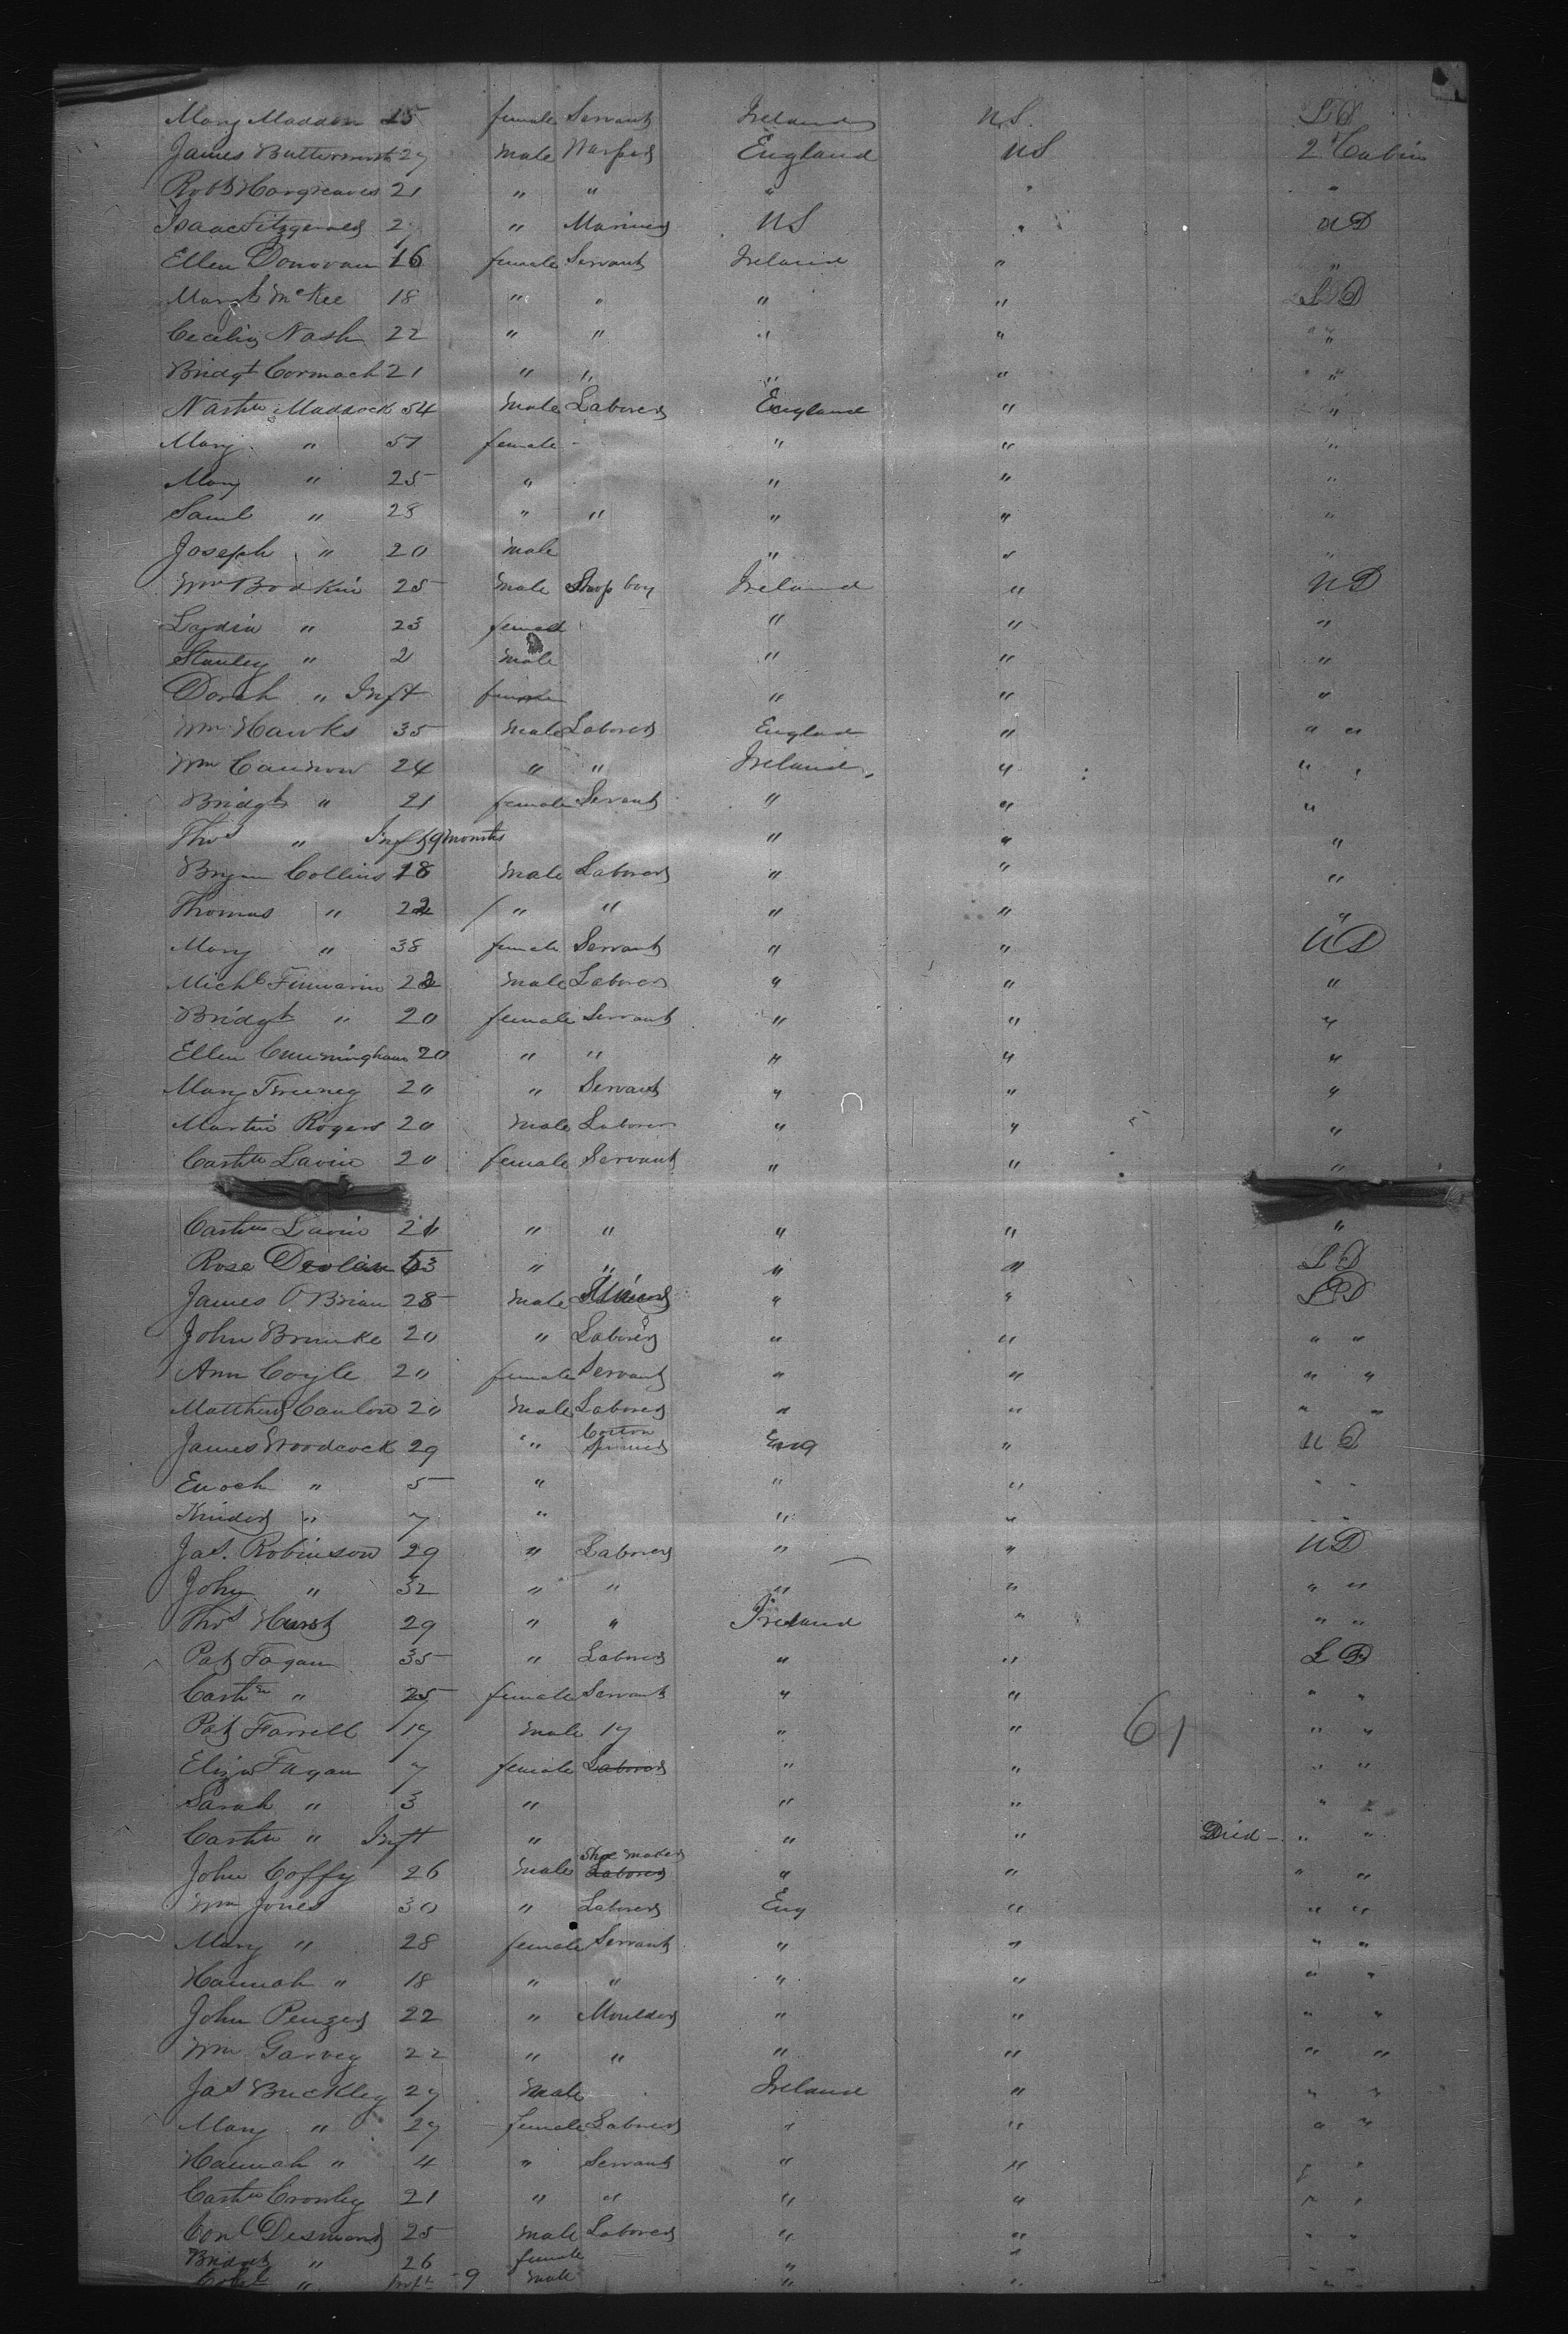 Mary Madden 25 female Servant Ireland U.S. L D
James Butterworth 27 male England US 2d Cabin
Robt Hargreaves 21 " " " " "
Isaac Fitzgerald 27 " Mariner US " U D
Ellen Donovan 16 female Servant Ireland " "
Margt McKee 18 " " " " L D
Cecelia Nash 22 " " " " "
Bridgt Cormack 21 " " " " "
Maddock 54 male Laborer England " "
Mary " 57 female " " "
Mary " 25 " " " "
Saml " 28 " " " " "
Joseph " 20 male " " "
Wm Bodkin 25 male Shop boy Ireland " U D
Lydia " 23 female " " "
Stanley " 2 male " " "
Dorah " Inft female " " "
Wm Hawks 35 male Laborer England " " "
Wm Cannon 24 " " Ireland " "
Bridgt " 21 female Servant " " "
Thos " Inft 9 months " " "
Bryan Collins 18 male Laborer " " "
Thomas " 22 " " " " "
Mary " 38 female Servant " " U D
Michl 22 male Laborer " " "
Bridgt " 20 female Servant " " "
Ellen Cunningham 20 " " " " "
Mary 20 " Servant " " "
Martin Rogers 20 male Laborer " " "
Cathn Lavin 20 female Servant " " "
Cathn Lavin 21 " " " " "
Rose Devlin 53 " " " " L D
James O'Brian 28 male " " L D
John 20 " Laborer " " " "
Ann Coyle 20 female Servant " " " "
Matthew Canlon 20 male Laborer " " " "
James Woodcock 29 " Cotton spinner Eng " U D
Enoch " 5 " " " " "
Kinder " 7 " " " " "
Jas. Robinson 29 " Laborer " " U D
John " 32 " " " " " "
Thos Hurst 29 " " Ireland " " "
Pat Fagan 35 " Laborer " " L D
Cathn " 25 female Servant " " " "
Pat Farrell 17 male 17 " " 61 " "
Eliza Fagan 7 female Laborer " " " "
Sarah " 3 " " " "
Cathn " Inft " " " Died " "
John Coffy 26 male Shoe maker Laborer " " " "
Wm Jones 30 " Laborer Eng " " "
Mary " 28 female Servant " " " "
Hannah " 18 " " " " " "
John 22 " Moulder " " " "
Wm Garvey 22 " " " " " "
Jas Buckley 27 male Ireland " " "
Mary " 27 female Laborer " " " "
Hannah " 4 " Servant " " " "
Cathn Crowley 21 " " " " " "
Conl Desmond 25 male Laborer " " " "
Bridgt " 26 female " " " "
" Inft 9 male " " " "